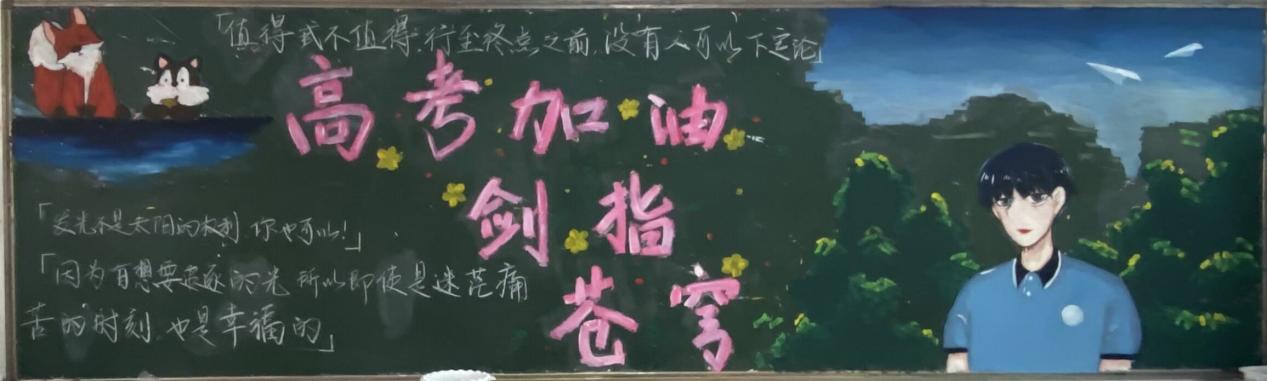 「值得或不值得,行至终点之前,没有人可以下定论」
高考加油
剑指
苍穹
「发光不是太阳的权利,你也可以!」
「因为有想要追逐的光 所以即使是迷茫痛
苦的时刻,也是幸福的」